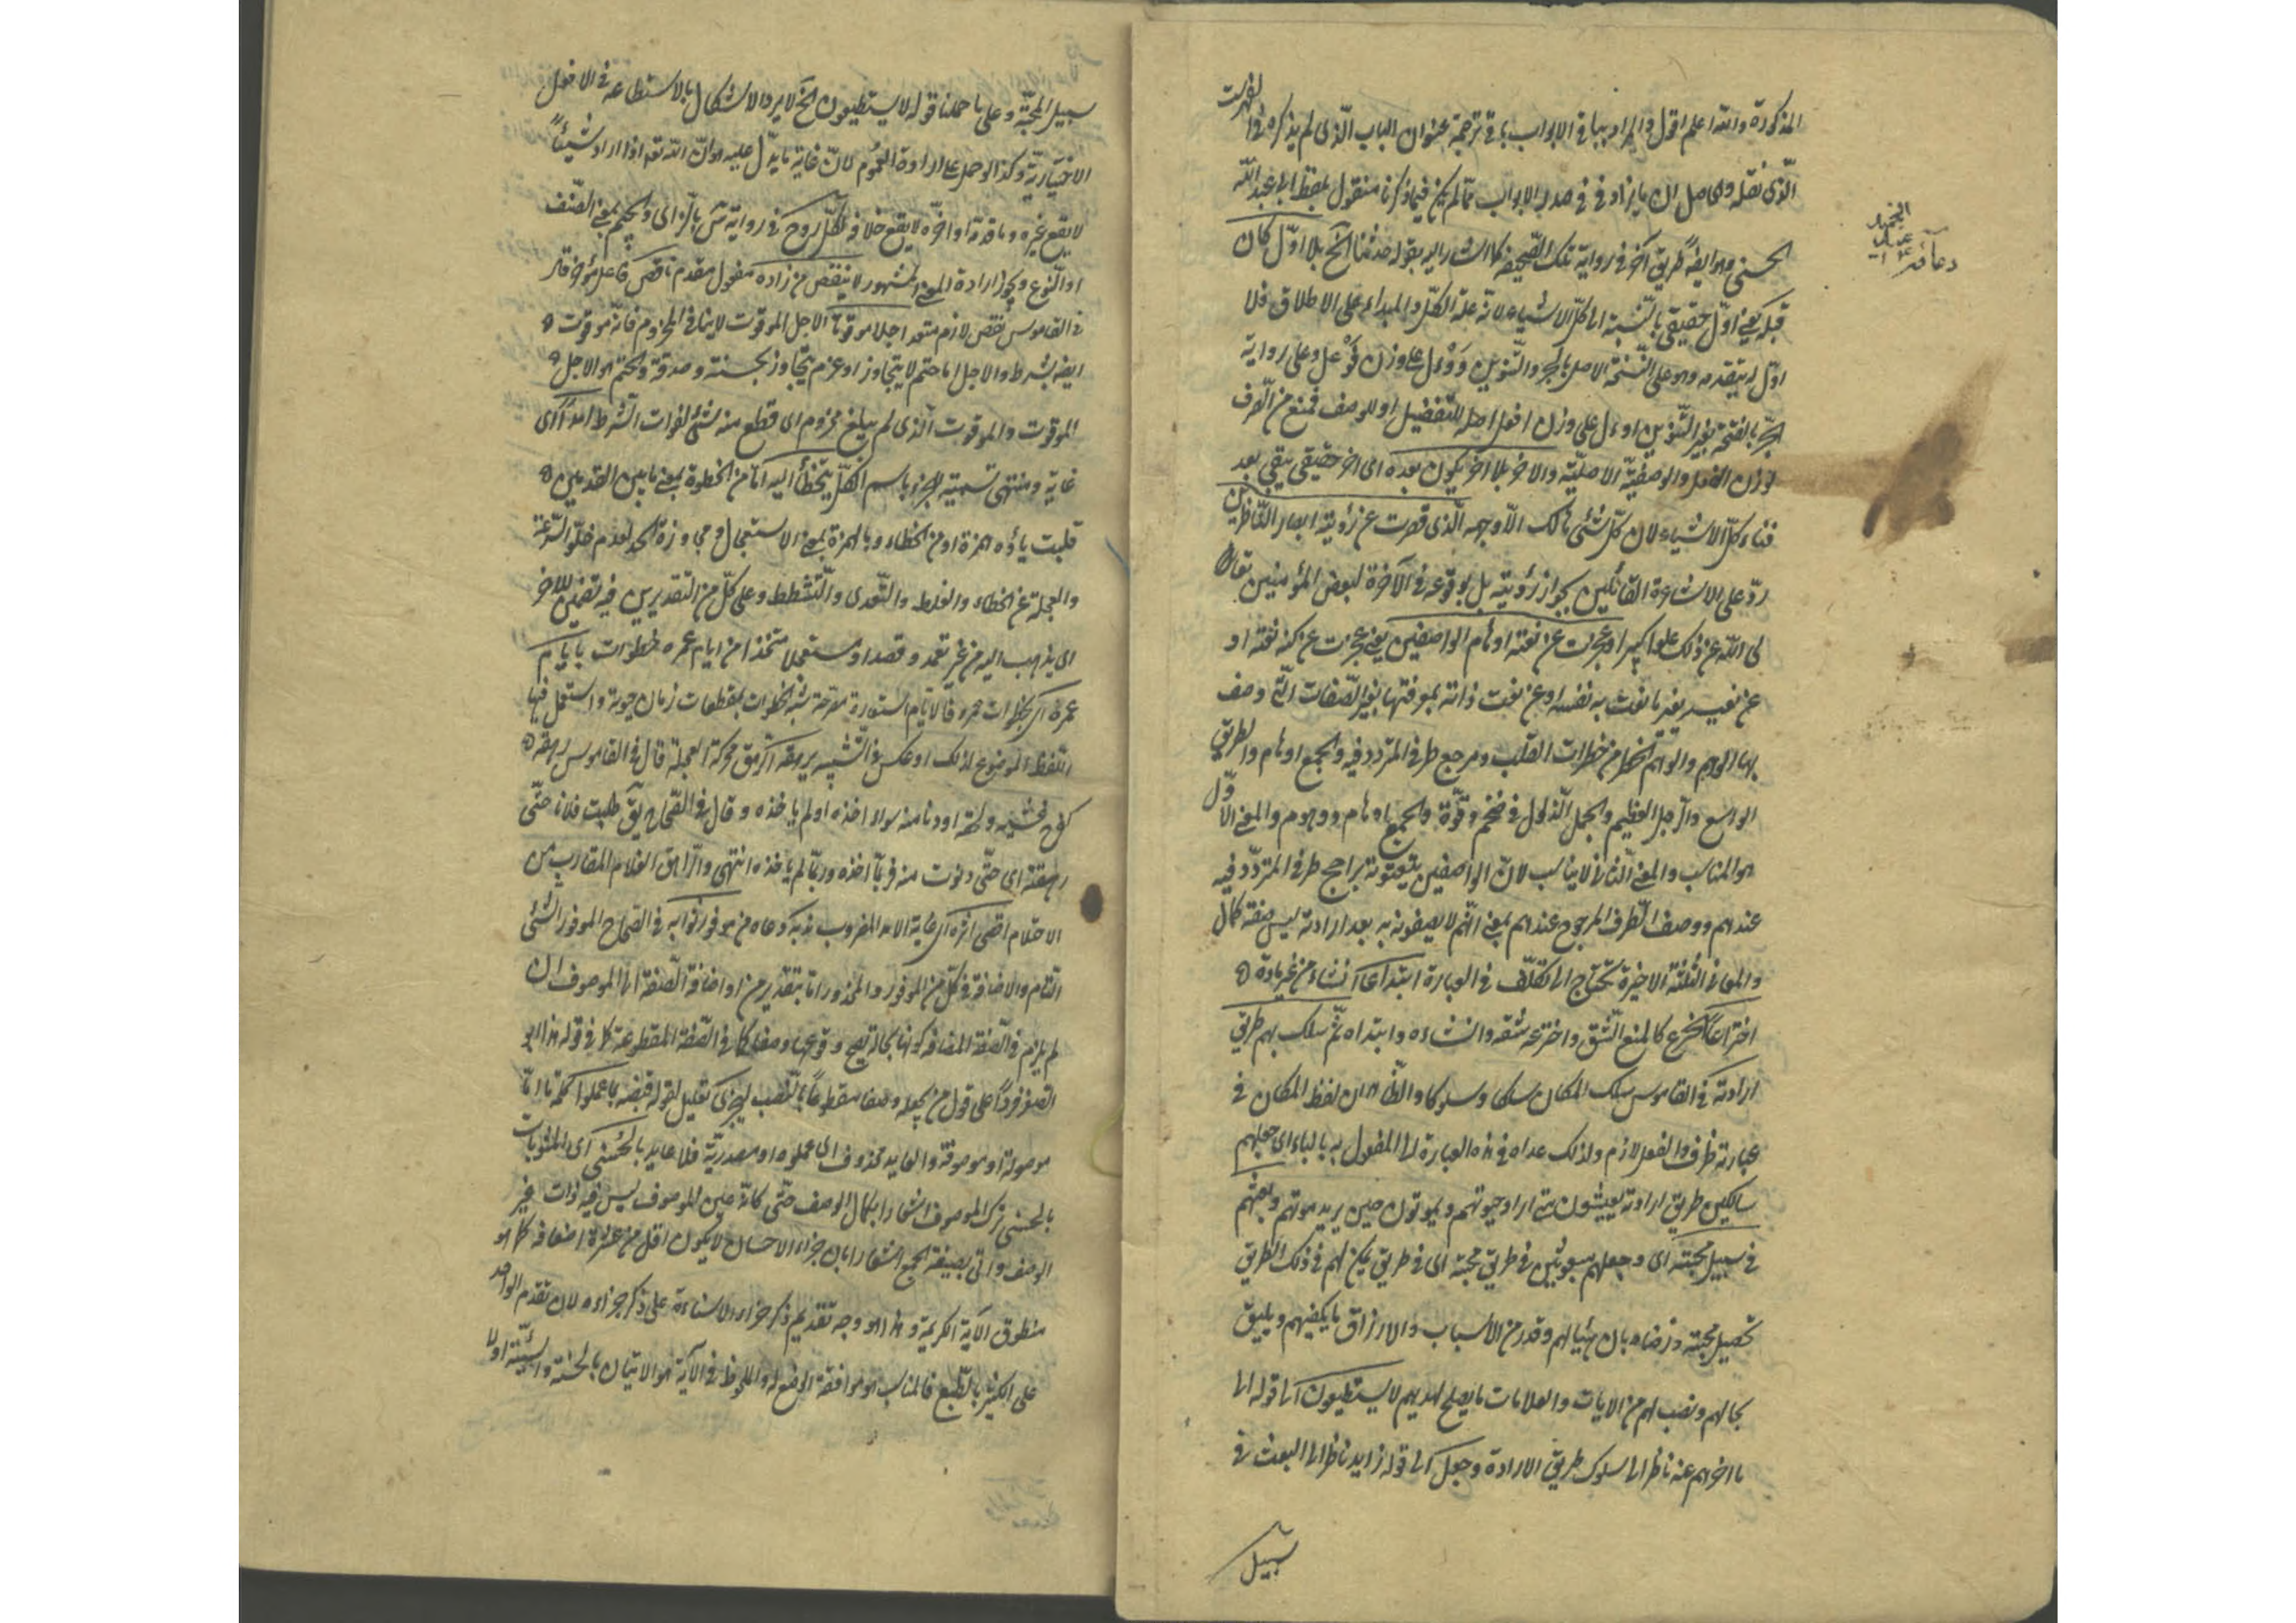 المذكورة والله اعلم اقول والمراد بباقي الابواب باقي ترجمة عنوان الباب الذي لم يذكره في الفهرست
الذي نقله والحاصل ان ما يزاد في في صدر الابواب مما لم يكن فيما ذكرنا منقول بلفظ ابي عبد الله
الحسني وهو ايضا طريق آخر في رواية تلك الصحيفة كما اشار اليه بقوله حدثنا الخ بلا اول كان
قبله يعني اول حقيقي بالنسبة الى كل الاشياء لانه علة الكل والمبداء على الاطلاق فلا
اول له يتقدمه وهو على النسخة الاصل بالجر والتنوين ووءل على وزن فوعل وعلى رواية
الجر بالفتحة بغير التنوين اوءل على وزن افعل اصله للتفضيل او للوصف فمنع من الصرف
لوزن الفعل والوصفية الاصلية والآخر بلا آخر يكون بعده اي آخر حقيقي يبقى بعد
فناء كل الاشياء لان كل شئ هالك الا وجهه الذي قصرت عن رؤيته ابصار الناظرين
رد على الاشاعرة القائلين بجواز رؤيته بل بوقوعه في الآخرة لبعض المؤمنين تعا
لى الله عن ذلك علوا كبيرا وعجزت عن نعته اوهام الواصفين يعني عجزت عن كنه نعته او
عن نعته بغير ما نعت به نفسه او عن نعت ذاته بمعرفتها بغير الصفات التي وصف
بها الوهم والوهم الخطر من خطرات القلب ومرجع طرفي المتردد فيه والجمع اوهام والطريق
الواسع والرجل العظيم والجمل الذلول في ضخم وقوة والجمع اوهام ووهوم والمعنى الاول
هو المناسب والمعنى الثاني لا يناسب لان الواصفين ينعتونه براجح طرفي المتردد فيه
عندهم ووصف الطرف المرجوح عندهم بمعنى انهم لا يصفونه به بعد ارادة ليس صفة كمال
والمعاني الثلثة الاخيرة تحتاج الى تكلف في العبارة ابتدا اي انشاء من غير مادة
اختراعا الخرع كالمنع الشق واخترعه شقه وانشاءه وابتداه ثم سلك بهم طريق
ارادته في القاموس سلك المكان سلكا وسلوكا والظاهر ان لفظ المكان في
عبارته ظرف والفعل لازم ولذلك عداه في هذه العبارة الى المفعول به بالباء اي جعلهم
سالكين طريق ارادته يعيشون متى اراد حيوتهم ويموتون حين يريد موتهم وبعثهم
في سبيل محبته اي وجعلهم مبعوثين في طريق محبته اي في طريق يمكن لهم في ذلك الطريق
تحصيل محبته ورضاه بان هيا لهم وقدر من الاسباب والارزاق ما يكفيهم ويليق
بحالهم ونصب لهم من الايات والعلامات ما يصلح لهديهم لا يستطيعون الى قوله الى
ما اخرهم عنه ناظر الى سلوك طريق الارادة وجعل الى قوله زايد ناظر الى البعث في
سبيل
سبيل المحبة وعلى ما حملنا قوله لا يستطيعون الخ لا يرد الاشكال بالاستطاعة في الافعال
الاختيارية وكذا لو حمل على ارادة العموم لان غاية ما يدل عليه هو ان الله تعه اذا اراد شيئا
لا يقع غيره وما قدمه او اخره لا يقع خلافه لكل روح في رواية س بالزاي والجيم بمعنى الصنف
او النوع ويجوز ارادة المعنى المشهور لا ينقص من زاده مفعول مقدم ناقص فاعل مؤخر قال
في القاموس نقص لازم متعد اجلا موقوتا الاجل الموقوت لا ينافي المخروم فانه موقوت
ايضا بشرط والاجل اما حتم لا يتجاوز او عزم يتجاوز بحسنة وصدقة والحتم هو الاجل
الموقوت والموقوت الذي لم يبلغ مخروم اي قطع منه شئ لفوات الشرط امدا اي
غاية ومنتهى تسمية للجزء باسم الكل يتخطأ اليه اما من الخطوة بمعنى ما بين القدمين
قلبت ياؤه همزة او من الخطاء وبالهمزة بمعنى الاستعجال ومجاوزة الحد لعدم خلو السرعة
والعجلة عن الخطاء والغلط والتعدى والتشطط وعلى كل من التقديرين فيه تضمين للآخر
اي يذهب اليه من غير تعمد وقصد او مستعجلا متخذا من ايام عمره خطوات بايام
عمره اي بخطوات عمره فالايام استعارة مصرحة شبه الخطوات بقطعات زمان حيوته واستعمل فيها
اللفظ الموضوع لذلك او عكس في التشبيه يرهقه الرهق محركة العجلة قال في القاموس رهقه
كفرح غشيه ولحقه او دنا منه سواء اخذه او لم ياخذه وقال في الصحاح يق طلبت فلانا حتى
رهقته اي حتى دنوت منه فربما اخذه وربما لم ياخذه انتهى والراهق الغلام المقارب من
الاحتلام اقصى اثره اي غاية الامد المضروب ندبه ودعاه من موفور ثوابه في الصحاح الموفور الشئ
التام والاضافة في كل من الموفور والمحذور اما بتقدير من او اضافة الصفة الى الموصوف ان
لم يلزم في الصفة المضافة كونها بحالة يصح وقوعها وصفا كما في الصفة المقطوعة كما في قوله هذا ابو
الصقر فردا على قول من يجعله وصفا مقطوعا بالنصب ليجزى تعليل لقوله قبضه بما عملوا كلمة ما اما
موصولة او موصوفة والعايد محذوف اي عملوه او مصدرية فلا عايد بالحسنى اي المثوبات
بالحسنى ترك الموصوف اشعارا بكمال الوصف حتى كانه عين الموصوف ليس فيه ذات غير
الوصف واتى بصيغة الجمع اشعارا بان جزاء الاحسان لا يكون اقل من عشرة اضعافه كما هو
منطوق الآية الكريمة وهذا هو وجه تقديم ذكر جزاء الاساءة على ذكر جزاءه لان تقدم الواحد
على الكثير بالطبع فالمناسب هو موافقة الوضع له والملحوظ في الآية هو الاتيان بالحسنة والسيئة اولا